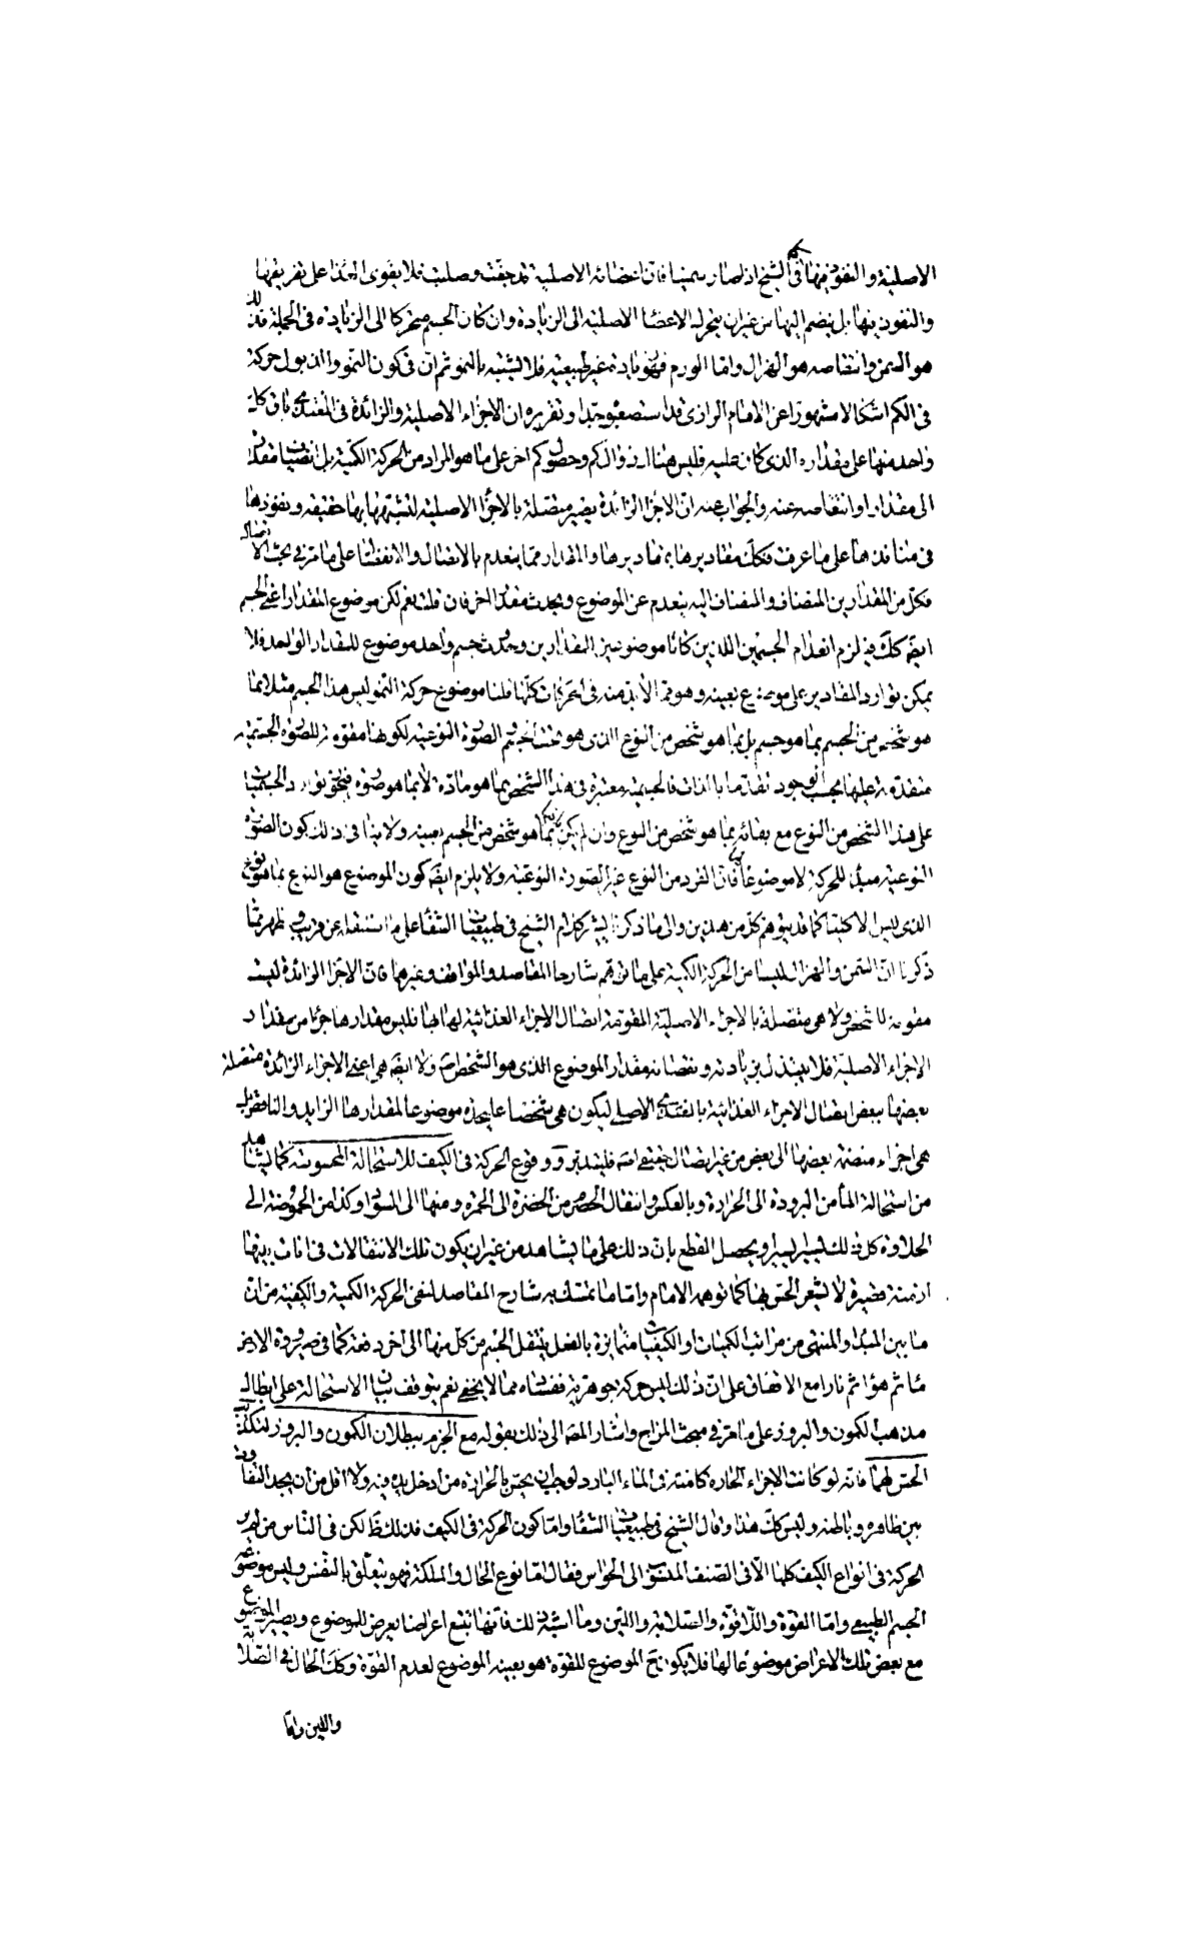 الاصلية والنفوذ فيها كما في الشيخ اذا صار سمينا فان اعضائه الاصلية قد جفت وصلبت فلا يقوى الغذا على تفريقها
والنفوذ فيها بل ينضم اليها من غير ان يتحرك الاعضا الاصلية الى الزيادة وان كان الجسم متحركا الى الزيادة في الجملة فذلك
هو السمن وانتقاصه هو الهزال واما الورم فهو زيادة غير طبيعية فلا يشتبه بالنمو ثم ان في كون النمو والذبول حركة
في الكم اشكالا مشهورا عن الامام الرازى قد استصعبوه جدا وتقريره ان الاجزاء الاصلية والزائدة في المغتذى باق كل
واحد منها على مقداره الذى كان عليه فليس هناك زوال كم وحصول كم اخر على ما هو المراد من الحركة الكمية بل انضياف مقدار
الى مقدار او انتقاصه عنه والجواب عنه ان الاجزا الزائدة يصير متصلة بالاجزا الاصلية لتشبهها بها حقيقة ونفوذها
في منافذها على ما عرفت فكل مقاديرها والمقدار مما ينعدم بالاتصال والانفصال على ما مر في بحث الاتصال
فكل من المقدارين المضاف والمضاف اليه ينعدم عن الموضوع ويحدث مقدار اخر فان قلت نعم لكن موضوع المقدار اعنى الجسم
ايضا كك فيلزم انعدام الجسمين اللذين كانا موضوعين للمقدارين وحدث جسم واحد موضوع للمقدار الواحد فلا
يمكن توارد المقادير على موضوع بعينه وهو مما لا بد منه في الحركات كلها قلنا موضوع حركة النمو ليس هذا الجسم مثلا بما
هو شخص من الجسم بما هو جسم بل بما هو شخص من النوع الذى هو تحت الجسم الصورة النوعية لكونها مقومة للصورة الجسمية
متقدمة عليها بحسب الوجود تقدما بالذات فالجسمية معتبرة في هذا الشخص بما هو مادة لا بما هو صورة فيجوز توارد الجسميات
على هذا الشخص من النوع مع بقائه بما هو شخص من النوع وان لم يكن بما هو شخص من الجسم بعينه ولا ينافى ذلك كون الصورة
النوعية مبدا للحركة لا موضوعا لها فان الفرد من النوع غير الصورة النوعية ولا يلزم ايضا كون الموضوع هو النوع بما هو نوع
الذى ليس الا كليا كما قد يتوهم كل من هذين والى ما ذكرنا يشير كلام الشيخ في طبيعيات الشفا على ما سننقله عن قريب وظهر مما
ذكرنا ان السمن والهزال ليسا من الحركة الكمية على ما توهم شارحا المقاصد والمواقف وغيرهما فان الاجزا الزائدة ليست
مقومة للشخص ولا هى متصلة بالاجزاء الاصلية المقومة اتصال الاجزاء الغذائية لها بها فليس مقدارها جزئا من مقدار
الاجزاء الاصلية فلا يتبدل بزيادته ونقصانه مقدار الموضوع الذى هو الشخص اصلا ولا ايضا هى اعنى الاجزاء الزائدة متصلة
بعضها ببعض اتصال الاجزاء الغذائية بالمغتذى الاصلى ليكون هى شخصا عليحدة موضوعا لمقدارها الزايد والناقص بل
هى اجزاء منضمة بعضها الى بعض من غير اتصال حقيقى اصلا فليتدبر ووقوع الحركة في الكيف للاستحالة المحسوسة كما يشاهد
من استحالة الماء من البرودة الى الحرارة وبالعكس وانتقال الحصرم من الخضرة الى الحمرة ومنها الى السواد وكذا من الحموضة الى
الحلاوة كل ذلك يسيرا يسيرا ويحصل القطع بان ذلك على ما يشاهد من غير ان يكون تلك الانتقالات في انات بينها
ازمنة قصيرة لا يشعر الحس بها كما توهمه الامام واما ما تمسك به شارح المقاصد لنفى الحركة الكمية والكيفية من ان
ما بين المبدا والمنتهى من مراتب الكميات او الكيفيات متمايزة بالفعل ينتقل الجسم من كل منها الى اخر دفعة كما في صيرورة الارض
ماء ثم هواء ثم نارا مع الاتفاق على ان ذلك ليس حركة جوهرية ففساده مما لا يخفى نعم يتوقف بيان الاستحالة على ابطال
مذهب الكمون والبروز على ما مر في مبحث المزاج واشار المصنف الى ذلك بقوله مع الجزم ببطلان الكمون والبروز لتكذيب
الحس لهما فانه لو كانت الاجزاء الحارة كامنة في الماء البارد لوجب ان يحس بالحرارة من ادخل يده فيه ولا اقل من ان يجد التفاوت
بين ظاهره وباطنه وليس كك هذا وقال الشيخ في طبيعيات الشفا واما كون الحركة في الكيف فذلك ظ لكن في الناس من لم ير
الحركة في انواع الكيف كلها الا في الصنف المنسوب الى الحواس فقال اما نوع الحال والملكة فهو متعلق بالنفس وليس موضوعه
الجسم الطبيعى واما القوة واللاقوة والصلابة واللين وما اشبه ذلك فانها تتبع اعراضا يعرض للموضوع ويصير الموضوع
مع بعض تلك الاعراض موضوعا لها فلا يكون ح الموضوع للقوة هو بعينه الموضوع لعدم القوة وكك الحال في الصلابة
واللين واما